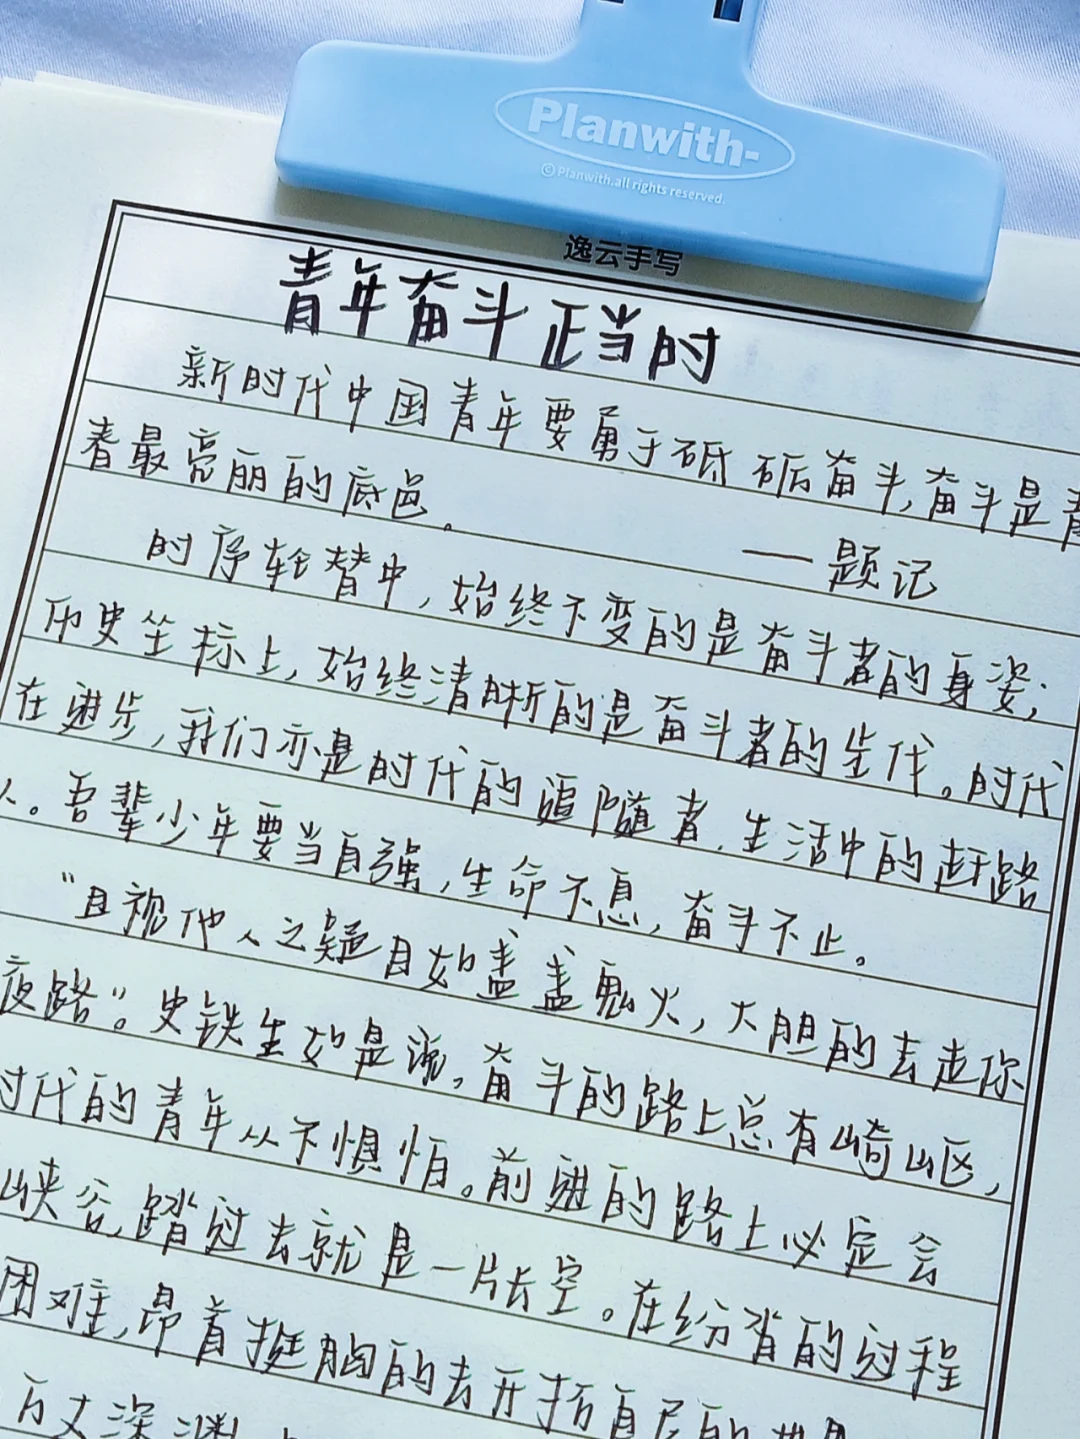 Planwith-
© Planwith.all rights reserved.
逸云手写
青年奋斗正当时
新时代中国青年要勇于砥砺奋斗,奋斗是青
春最亮丽的底色。
——题记
时序轮替中,始终不变的是奋斗者的身姿;
历史坐标上,始终清晰的是奋斗者的步伐。时代
在进步,我们亦是时代的追随者,生活中的赶路
人。吾辈少年要当自强,生命不息,奋斗不止。
“且视他人之疑目如盏盏鬼火,大胆的去走你
夜路”。史铁生如是说。奋斗的路上总有崎岖,
时代的青年从不惧怕。前进的路上必定会
峡谷,踏过去就是一片长空。在纷背的过程
困难,昂首挺胸的去开拓自己的
万丈深渊